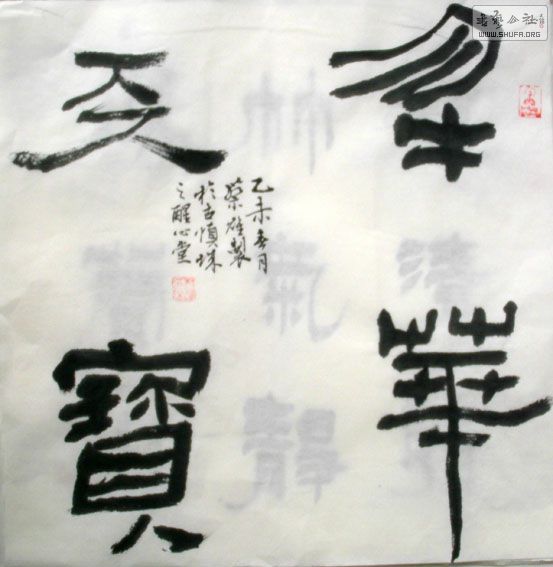 物華
天寶
乙未冬月
蔡雄製
於古慎珠
之醒心堂
書藝公社
WWW.SHUFA.ORG